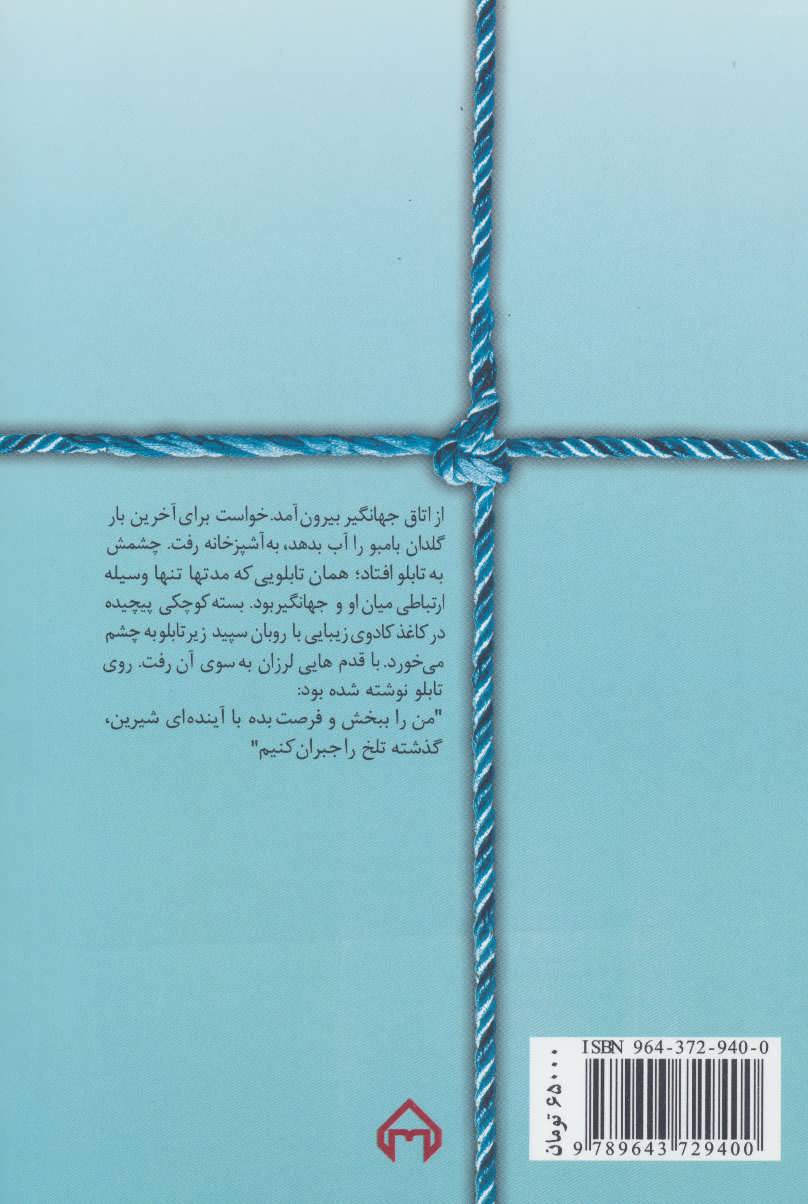 از اتاق جهانگیر بیرون آمد. خواست برای آخرین بار
گلدان بامبو را آب بدهد، به آشپزخانه رفت. چشمش
به تابلو افتاد؛ همان تابلویی که مدتها تنها وسیله
ارتباطی میان او و جهانگیر بود. بسته کوچکی پیچیده
در کاغذ کادوی زیبایی با روبان سپید زیر تابلو به چشم
می‌خورد. با قدم هایی لرزان به سوی آن رفت. روی
تابلو نوشته شده بود:
"من را ببخش و فرصت بده با آینده‌ای شیرین،
گذشته تلخ را جبران کنیم"
ISBN 964-372-940-0
۶۵۰۰۰ تومان
9 789643 729400